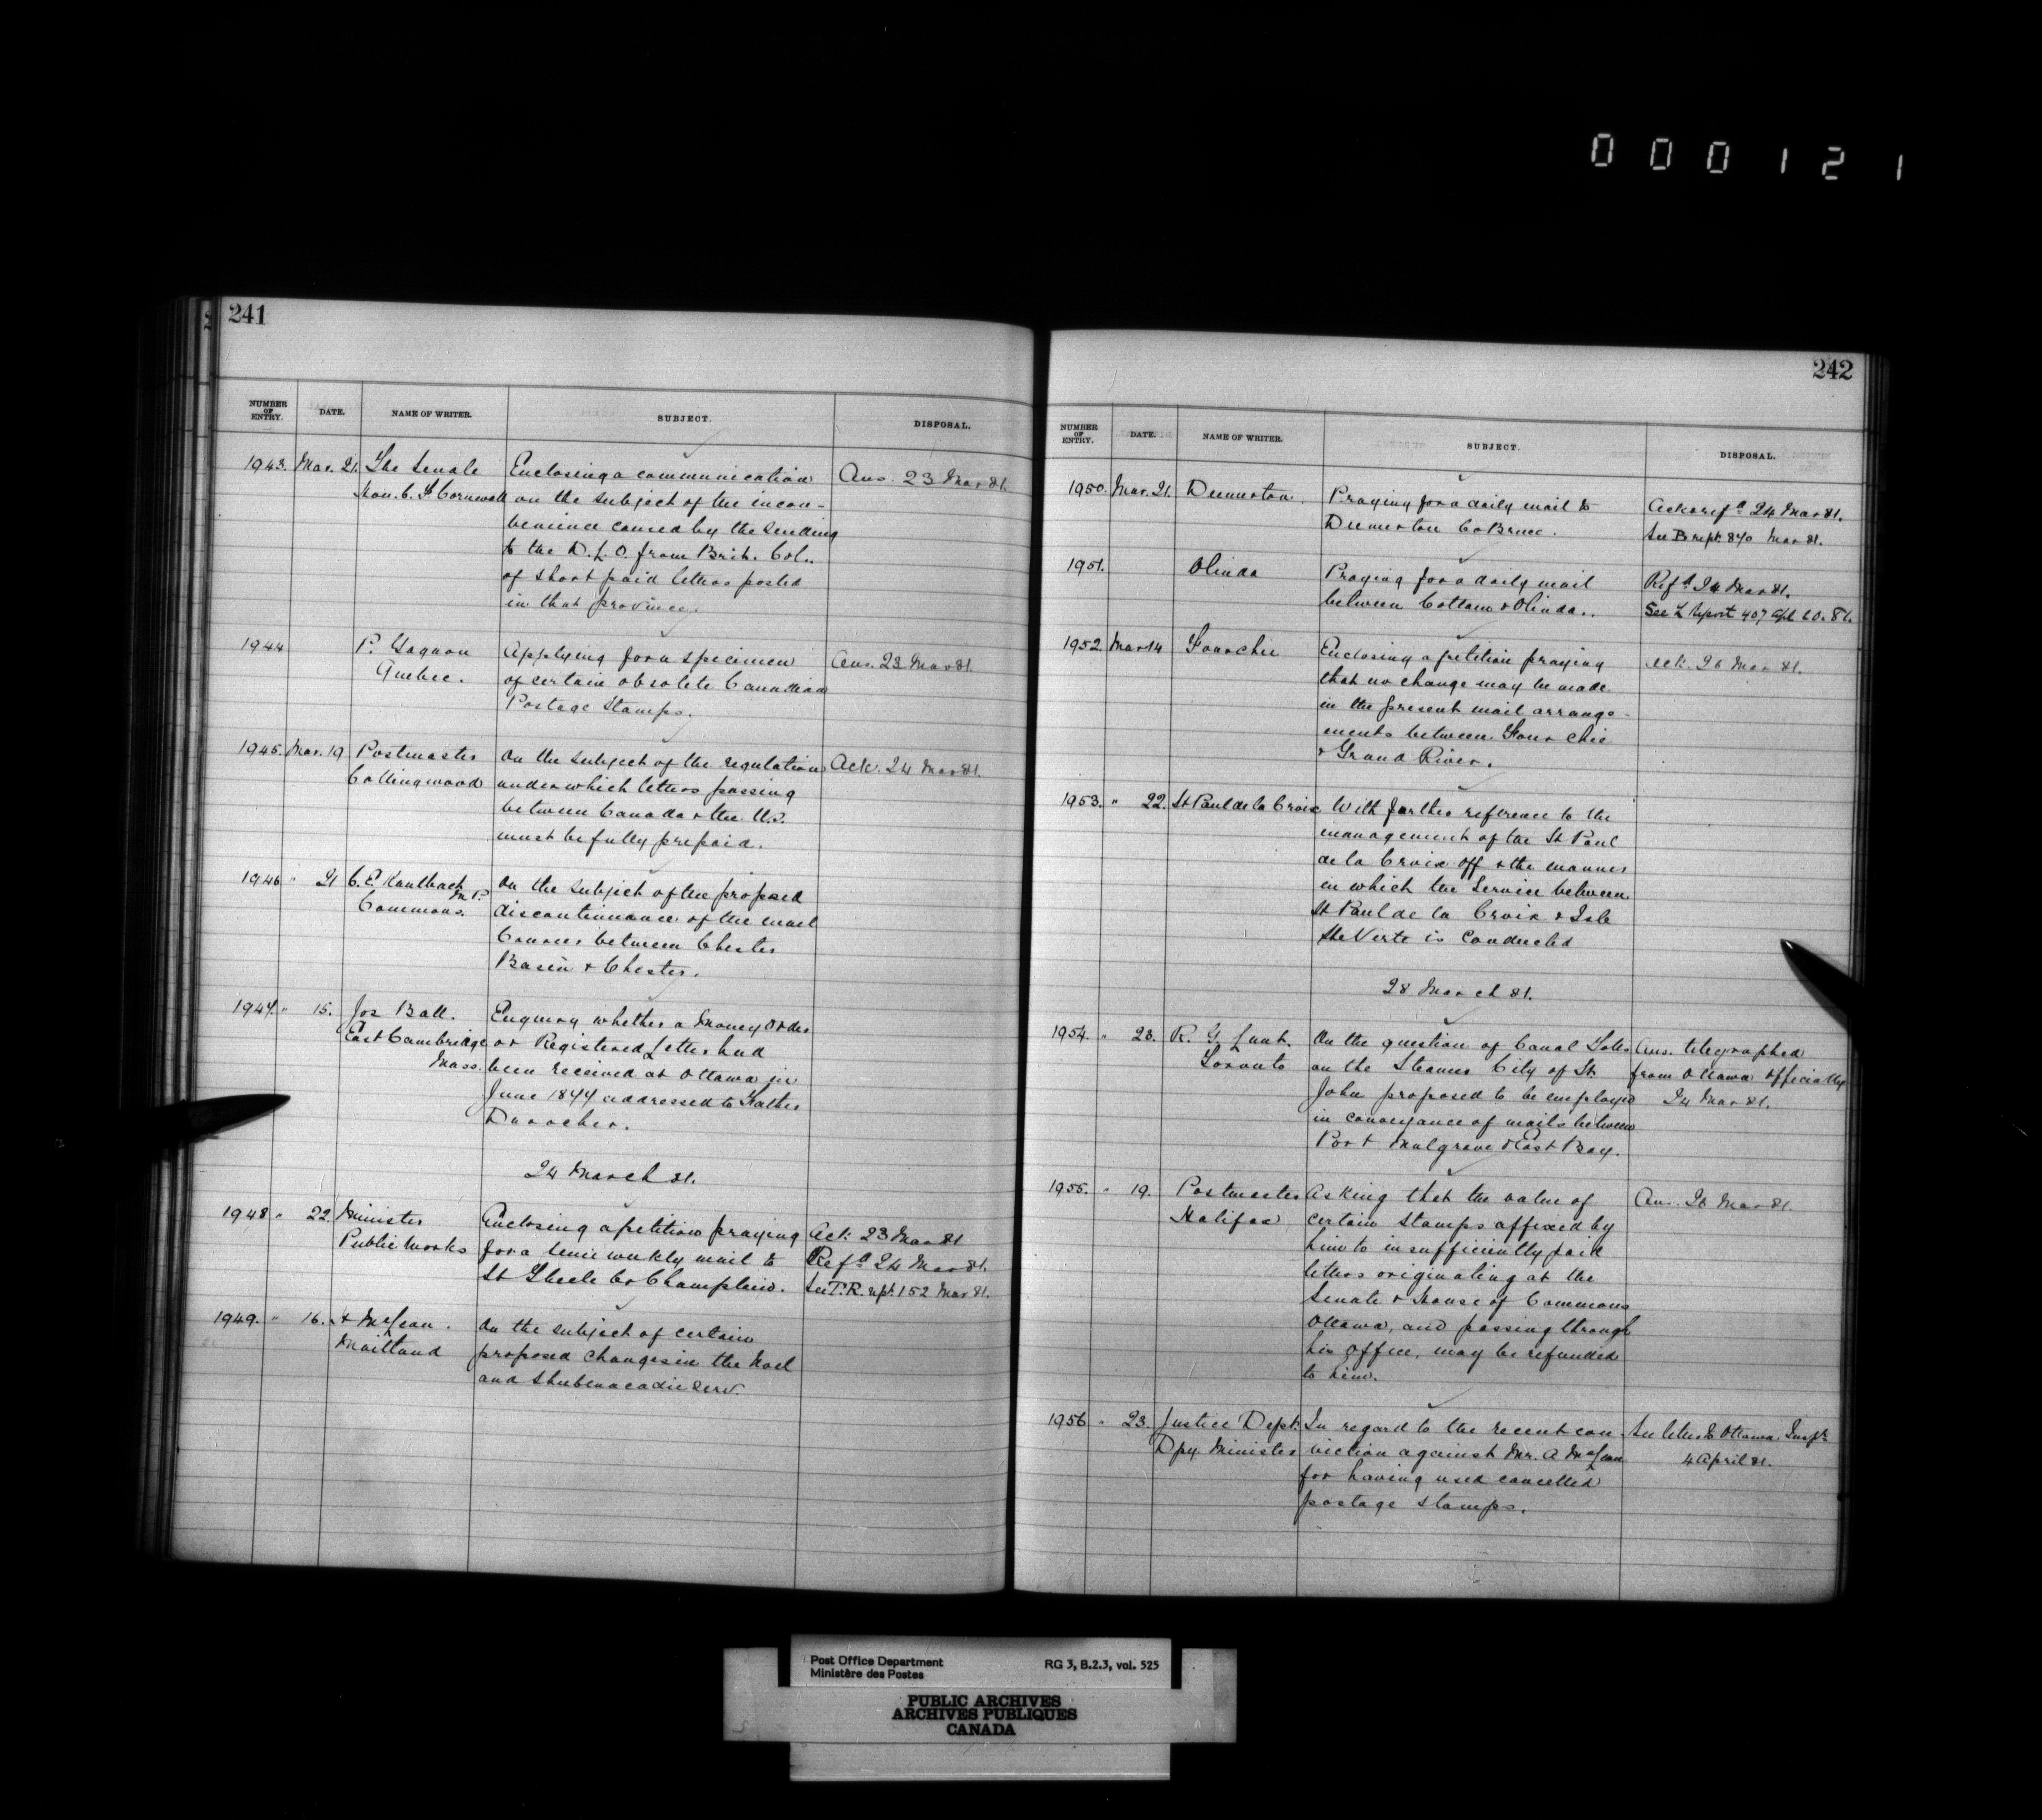 000121
241
NUMBER OF ENTRY. DATE. NAME OF WRITER. SUBJECT. DISPOSAL.
1943. Mar. 21. The Senate Enclosing a communication Ans. 23 Mar 81.
Hon. C. F. Cornwall on the subject of the incon-
venience caused by the sending
to the D. L. O. from Brit. Col.
of short paid letters posted
in that province.
1944 P. Gagnon Applying for a specimen Ans. 23 Mar 81.
Quebec. of certain obsolete Canadian
Postage Stamps.
1945. Mar. 19 Postmaster On the subject of the regulations Ack. 24 Mar 81.
Collingwood under which letters passing
between Canada & the U.S.
must be fully prepaid.
1946 " 21 C. E. Kaulbach M.P. On the subject of the proposed
Commons. discontinuance of the mail
Courier between Chester
Basin & Chester.
1947. " 15. Jos Ball. Enquiry whether a Money Order
East Cambridge or Registered Letter had
Mass. been received at Ottawa in
June 1877 addressed to Father
Durocher.
24 March 81.
1948 " 22. Minister Enclosing a petition praying Ack. 23 Mar 81
Public Works for a semi weekly mail to Refd 24 Mar 81.
St Thecle Co Champlain. See T.R. rept 152 Mar 81.
1949. " 16. A McLean. On the subject of certain
Maitland proposed changes in the Noel
and Shubenacadie serv.
242
NUMBER OF ENTRY. DATE. NAME OF WRITER. SUBJECT. DISPOSAL.
1950. Mar. 21. Deemerton. Praying for a daily mail to Ack & refd 24 Mar 81.
Deemerton Co Bruce. See B rept. 840 Mar 81.
1951. Olinda Praying for a daily mail Refd 24 Mar 81.
between Cottam & Olinda. See L Report 407 Apl 20. 81.
1952 Mar 14 Fourchie Enclosing a petition praying Ack. 26 Mar 81.
that no change may be made
in the present mail arrange-
ments between Fourchie
& Grand River.
1953. " 22. St Paul de la Croix With further reference to the
management of the St Paul
de la Croix off & the manner
in which the Service between
St Paul de la Croix & Isle
Verte is conducted
28 March 81.
1954. " 23. R. G. Lunt. On the question of Canal Tolls Ans. telegraphed
Toronto on the Steamer City of St. from Ottawa officially
John proposed to be employed 24 Mar 81.
in conveyance of mails between
Port Mulgrave & East Bay.
1955. " 19. Postmaster Asking that the value of An. 26 Mar 81.
Halifax certain stamps affixed by
him to insufficiently paid
letters originating at the
Senate & House of Commons
Ottawa, and passing through
his office, may be refunded
to him.
1956 " 23. Justice Dept. In regard to the recent con- See letter to Ottawa Inspr
Dpy. Minister viction against Mr. A McLean 4 April 81.
for having used cancelled
postage stamps.
Post Office Department RG 3, B.2.3, vol. 525
Ministère des Postes
PUBLIC ARCHIVES
ARCHIVES PUBLIQUES
CANADA